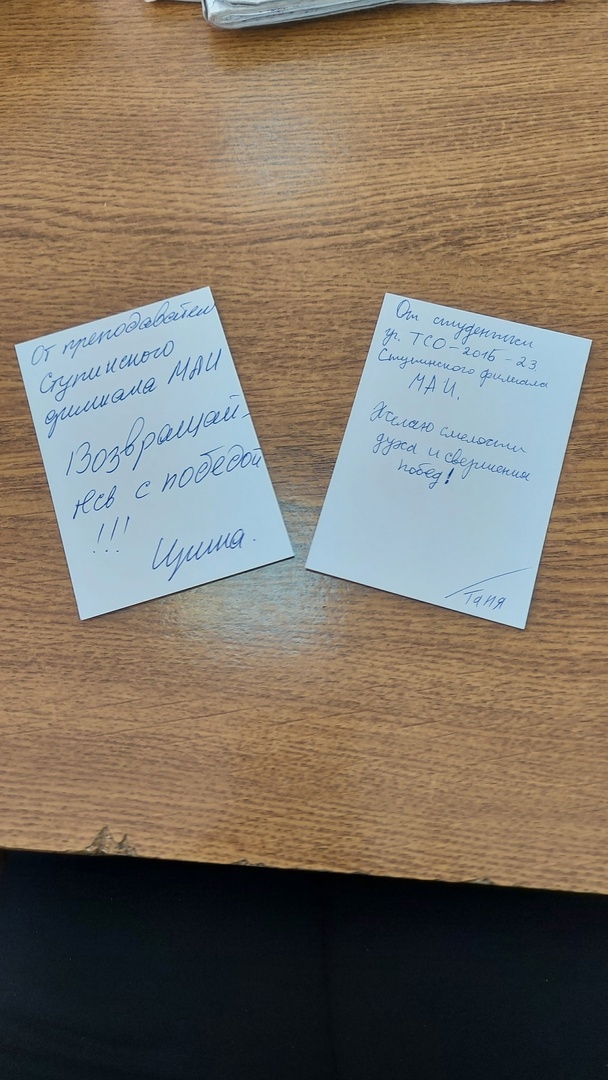 От преподавателя
Ступинского
филиала МАИ
Возвращай-
теся с победой
!!!
Ирина.
От студентки
гр. ТСО-201Б-23
Ступинского филиала
МАИ.
Желаю смелости
духа и свершения
побед!
Таня